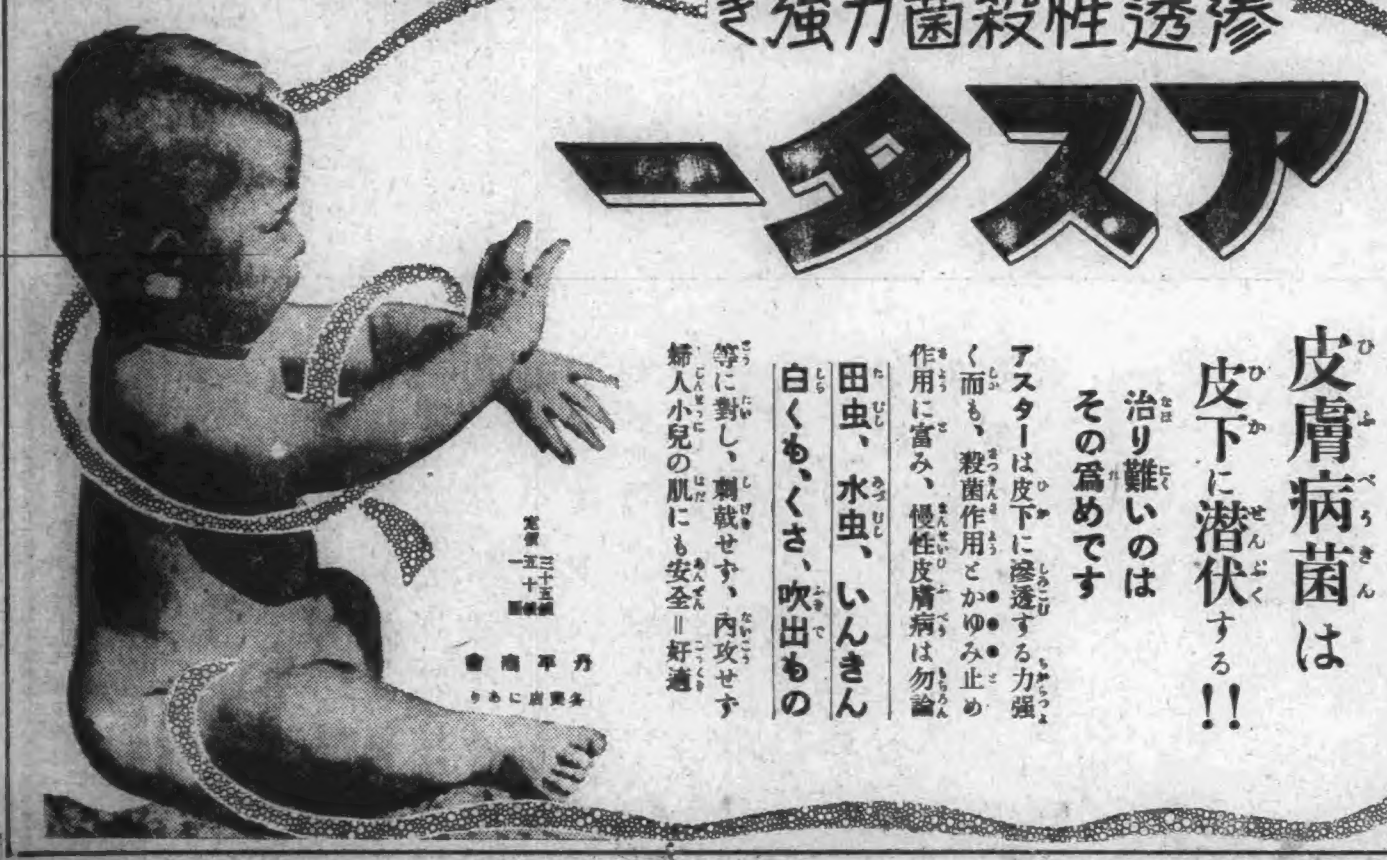 滲透性殺菌力強き
アスター
皮膚病菌は
皮下に潜伏する!!
治り難いのは
その爲めです
アスターは皮下に滲透する力强
く而も、殺菌作用とかゆみ止め
作用に富み、慢性皮膚病は勿論
田虫、水虫、いんきん
白くも、くさ、吹出もの
等に對し、刺戟せず、內攻せず
婦人小兒の肌にも安全=好適
定價
三十五錢
五十錢
一圓
丹平商會
各藥店にあり